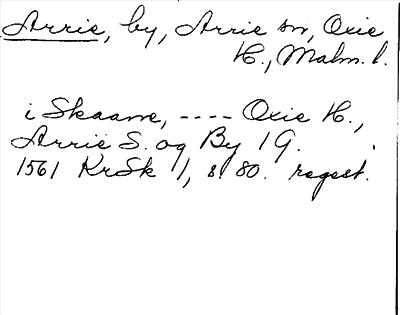 Arrie, by, Arrie sn, Oxie
H., Malm. l.
i Skaane, ---- Oxie H.,
Arrie S. og By 1 G.
1561 KrSk 1, s. 80. regest.